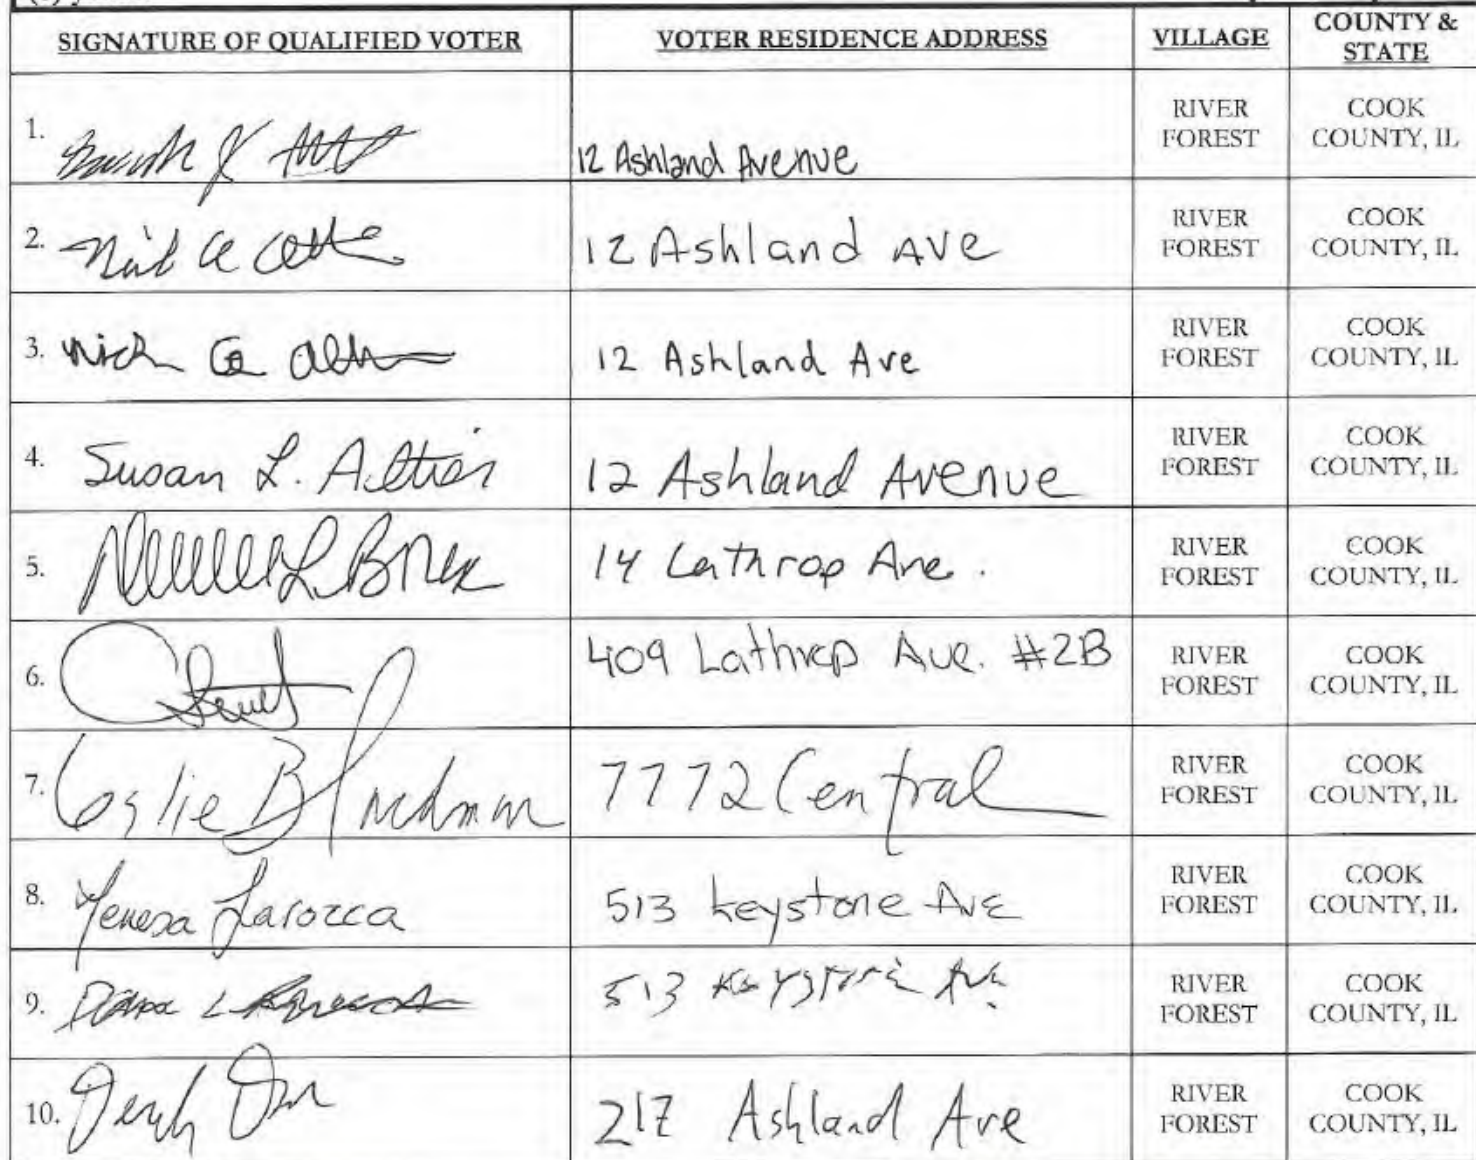 SIGNATURE OF QUALIFIED VOTER VOTER RESIDENCE ADDRESS VILLAGE COUNTY & STATE
1. 12 Ashland Avenue RIVER FOREST COOK COUNTY, IL
2. 12 Ashland Ave RIVER FOREST COOK COUNTY, IL
3. Nick 12 Ashland Ave RIVER FOREST COOK COUNTY, IL
4. Susan L. Altieri 12 Ashland Avenue RIVER FOREST COOK COUNTY, IL
5. 14 Lathrop Ave. RIVER FOREST COOK COUNTY, IL
6. 409 Lathrop Ave. #2B RIVER FOREST COOK COUNTY, IL
7. Leslie B 7772 Central RIVER FOREST COOK COUNTY, IL
8. Teresa Larocca 513 Keystone Ave RIVER FOREST COOK COUNTY, IL
9. Diana L 513 Keystone Ave. RIVER FOREST COOK COUNTY, IL
10. 217 Ashland Ave RIVER FOREST COOK COUNTY, IL